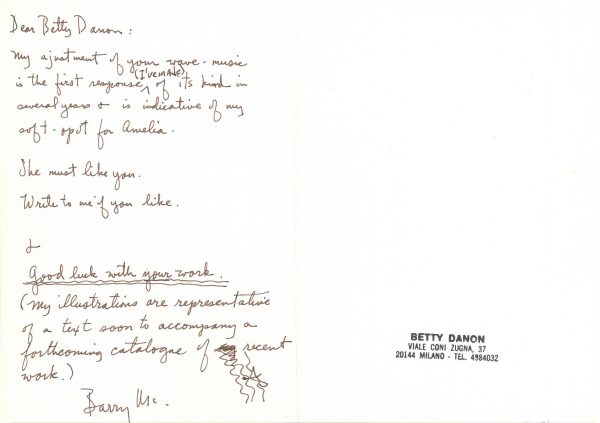 Dear Betty Danon:
My ajustment of your wave-music
is the first response (I've made) of its kind in
several years & is indicative of my
soft-spot for Amelia.
She must like you.
Write to me if you like.
&
Good luck with your work.
(My illustrations are representative
of a text soon to accompany a
forthcoming catalogue of recent
work.)
Barry Mc.
BETTY DANON
VIALE CONI ZUGNA, 37
20144 MILANO - TEL. 4984032